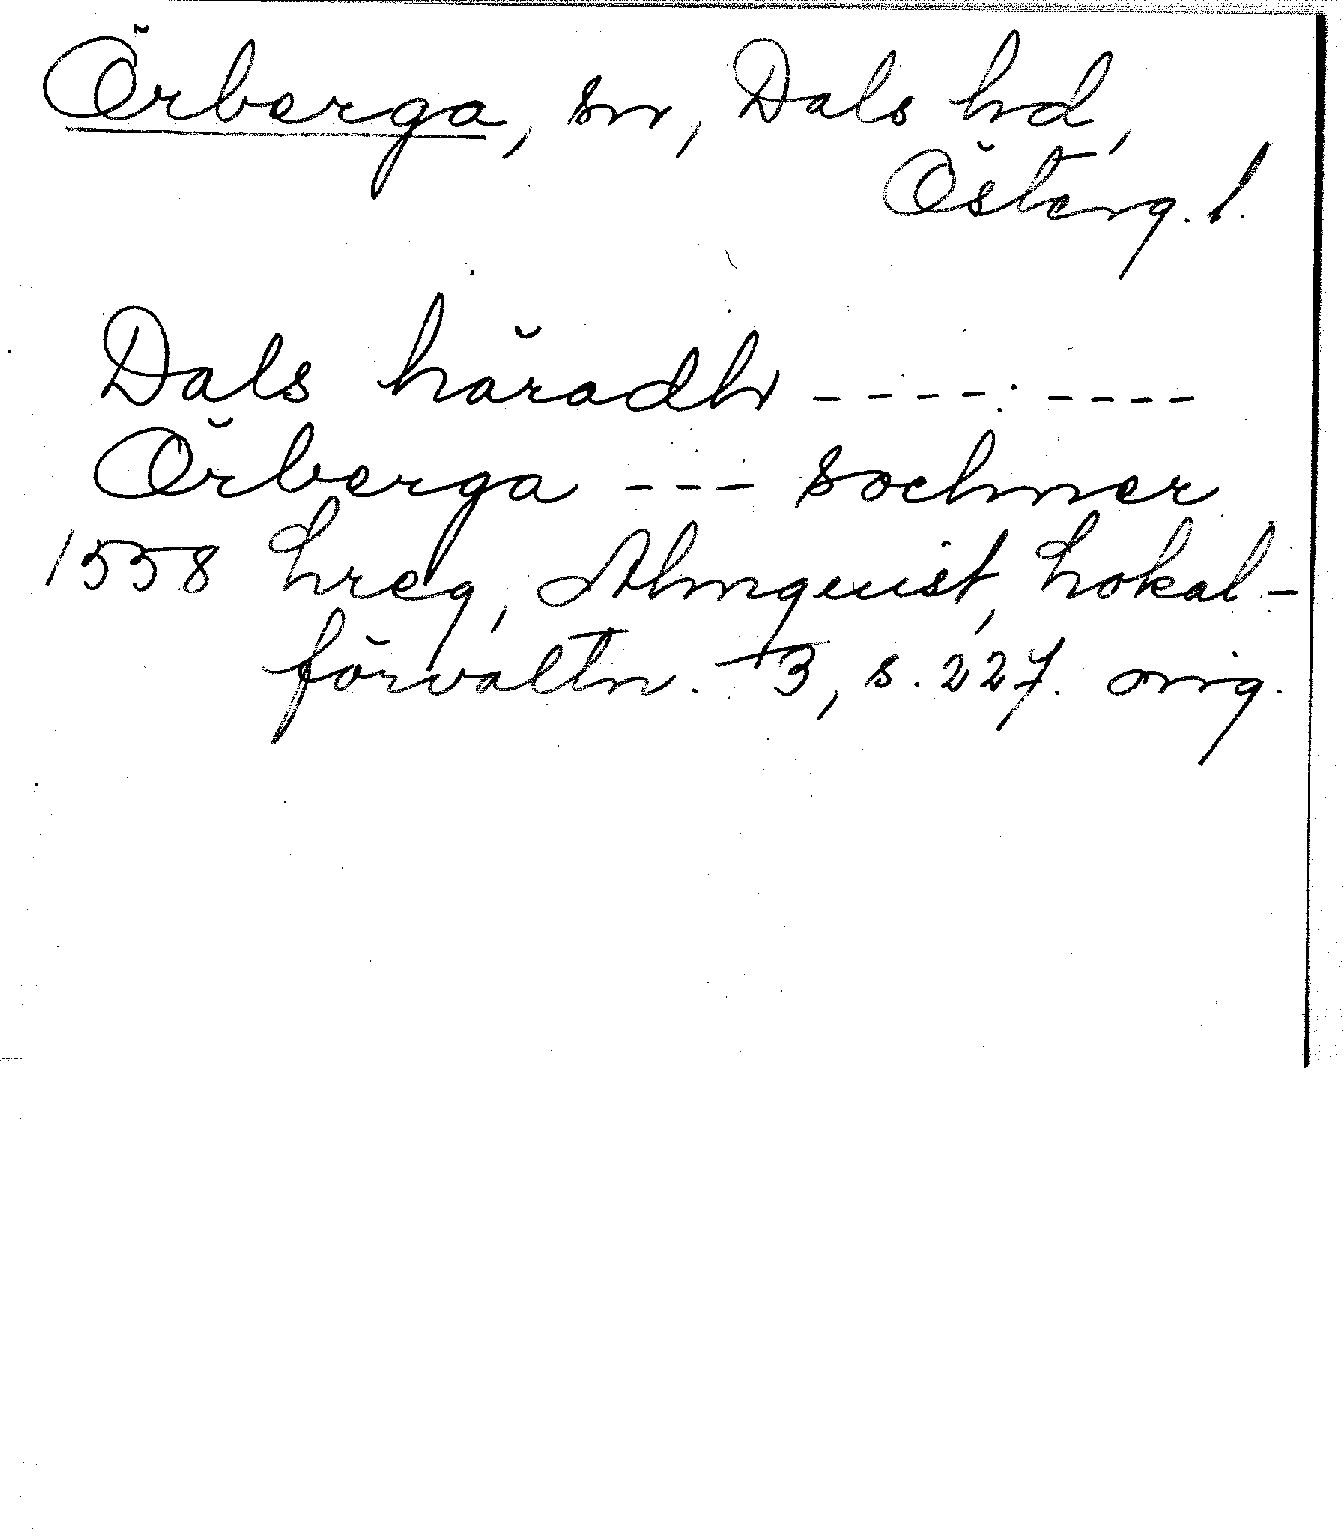 Örberga, sn, Dals hd,
Österg. l.
Dals häradh ---- : ----
Örberga --- sochner
1558 Lreg, Almquist, Lokal-
förvaltn. 3, s. 227. orig.